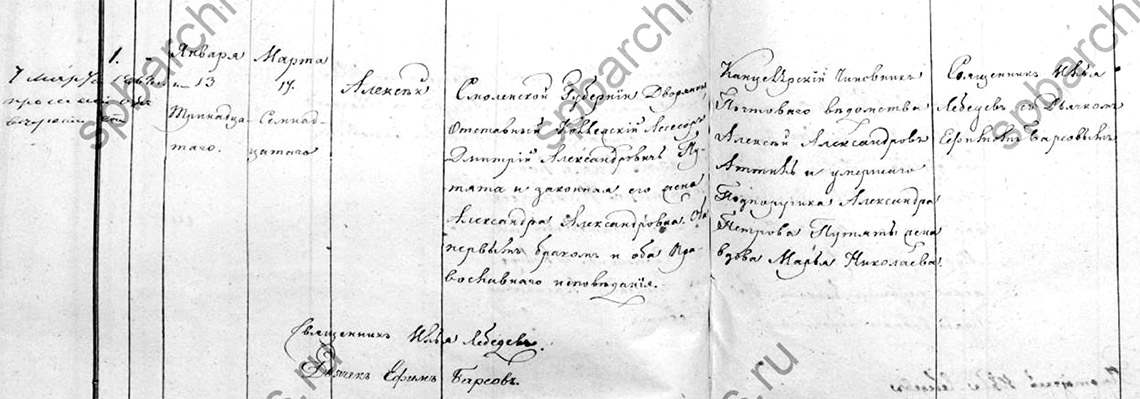 1.
Января
13
Тринадца-
таго.
Марта
17.
Семнад-
цатаго
Алексѣй
Смоленской Губерніи Дворянинъ
Отставный Коллежскій Асессоръ
Дмитрій Александровичъ Пу-
тята и законная его жена
Александра Александровна. Оба
первымъ бракомъ и оба Пра-
вославнаго исповѣданія.
Канцелярскій Чиновникъ
Почтоваго вѣдомства
Алексѣй Александровъ
и умершаго
Подпоручика Александра
Петрова Путяты жена
вдова Марья Николаева.
Священникъ Илья
Лебедевъ съ Дьячкомъ
Ефимомъ Барсовымъ
Священникъ Илья Лебедевъ.
Дьячекъ Ефимъ Барсовъ.
7 марта
spbarch
spbarchi
spbarchi
f.ru
s.ru